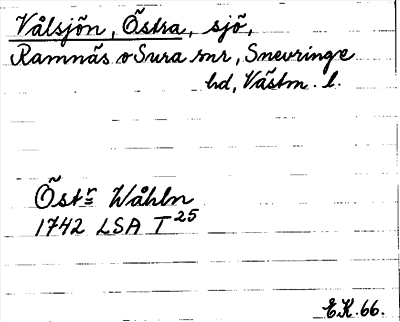 Vålsjön, Östra, sjö,
Ramnäs o Sura snr, Snevringe
hd, Västm. l.
Östr Wåhln
1742 LSA T25
E.K. 66.